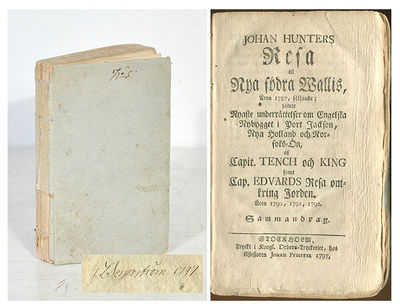 N:o 5.
1797.
JOHAN HUNTERS
Resa
til
Nya södra Wallis,
Åren 1787, följande;
jämte
Nyaste underrättelser om Engelska
Nybygget i Port Jackson,
Nya Holland och Nor-
folks-Ön,
af
Capit. TENCH och KING
samt
Cap. EDVARDS Resa om-
kring Jorden.
Åren 1790, 1791, 1792.
Sammandrag.
STOCKHOLM,
Tryckt i Kongl. Ordens-Tryckeriet, hos
Assessoren JOHAN PFEIFFER 1797.